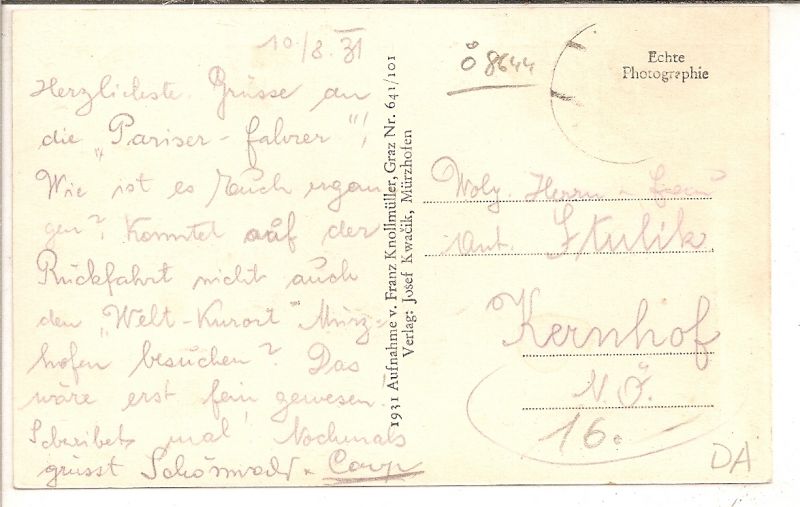 10/8. 31
Herzlichste Grüsse an
die „Pariser-fahrer"!
Wie ist es Euch ergan
gen? Konntet auf der
Rückfahrt nicht auch
den „Welt-Kurort" Mürz-
hofen besuchen? Das
wäre erst fein gewesen.
Schreibet mal! Nochmals
grüsst Schönwald u.
1931 Aufnahme v. Franz Knollmüller, Graz Nr. 641/101
Verlag: Josef Kwačik, Mürzhofen
Ö 8644
Echte
Photographie
Wolg. Herrn u. Frau
Ant. Stulik
Kernhof
N. Ö.
16.
DA